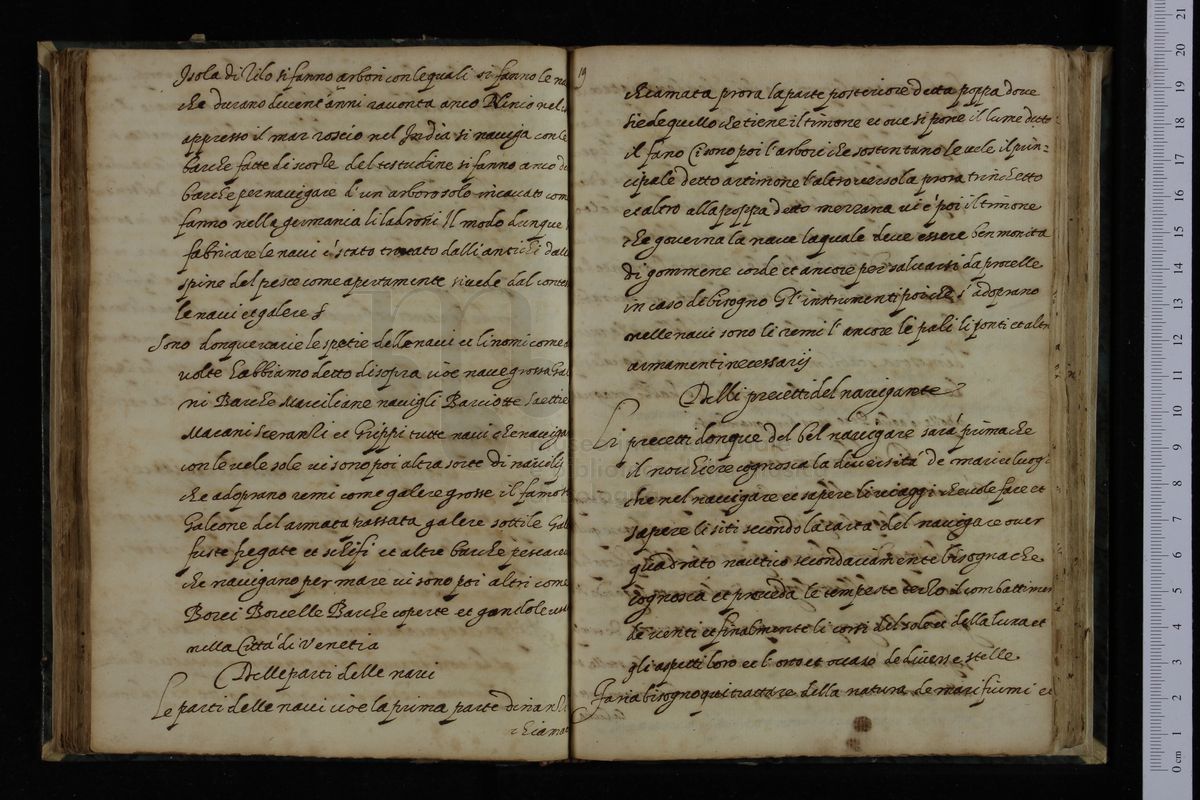 Isola di Tilo si fanno arbori con le quali si fanno le na
che durano ducent'anni racconta anco Plinio nel
appresso il mar roscio nel India si naviga con le
barche fatte di scorze del testudine si fanno anco de
barche per navigare d'un arboro solo incavato com
fanno nella germania li ladroni Il modo dunque
fabricare le navi è stato trovato dalli antichi dall
spine del pesce come apertamente si vede dal contes
le navi et galere
Sono donque varie le spetie delle navi et li nomi come
volte habbiamo detto di sopra cioe nave grossa Gal
ni Barche Marciliane navigli Barciotte Saettie
Marani et Grippi tutte navi che naviga
con le vele sole vi sono poi altra sorte di navilij
che adoprano remi come galere grosse il famos
Galeone del armata passata galere sottile Gal
fuste fregate et schifi et altre barche pescare
che navigano per mare vi sono poi altri come
Burci Burcelle Barche coperte et gondole
nella Città di Venetia
Delle parti delle navi
Le parti delle navi cioe la prima parte dinanzi
chiamat
19
chiamata prora la parte posteriore detta poppa dove
siede quello che tiene il timone et ove si pone il lume detto
il fano Ci sono poi l'arbori che sostentano le vele il prin=
cipale detto artimone l'altro verso la prora trinchetto
et altro alla poppa detto mezzana vi è poi il timone
che governa la nave la quale deve essere ben monita
di gommene corde et ancore per salvarsi da procelle
in caso di bisogno Gl'instrumenti poi che s'adoprano
nelle navi sono li remi l'ancore le pali li ponti et altri
armamenti necessarij
Delli precetti del navigante
Li precetti donque del bel navigare sarà prima che
il nochiere cognosca la diversità de mari et luogi
che nel navigare et sapere li viaggi che vole fare et
sapere li siti secondo la carta del navigare over
quadrato nautico secondariamente bisogna che
cognosca et proceda le tempeste et lo il combattimen
de venti et finalmente li corsi del sole et della luna et
gli aspetti loro et l'orto et occaso de diverse stelle
Faria bisogno qui trattare della natura de mari fiumi et